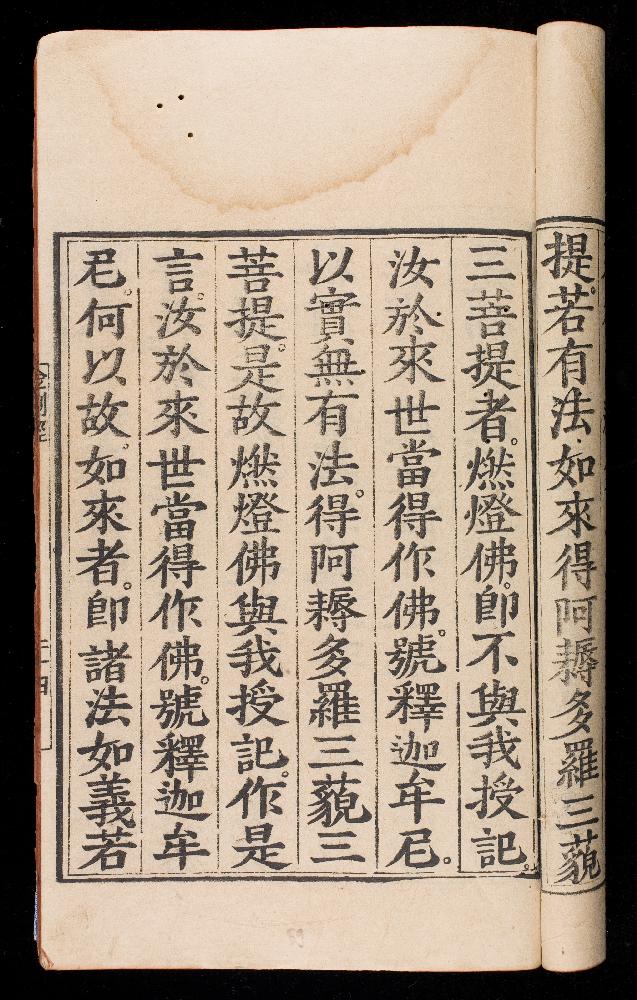 提。若有法。如來得阿耨多羅三藐
三菩提者。燃燈佛。即不與我授記。
汝於來世當得作佛。號釋迦牟尼。
以實無有法。得阿耨多羅三藐三
菩提。是故燃燈佛與我授記。作是
言。汝於來世當得作佛。號釋迦牟
尼。何以故。如來者。即諸法如義若
金剛經
二十四